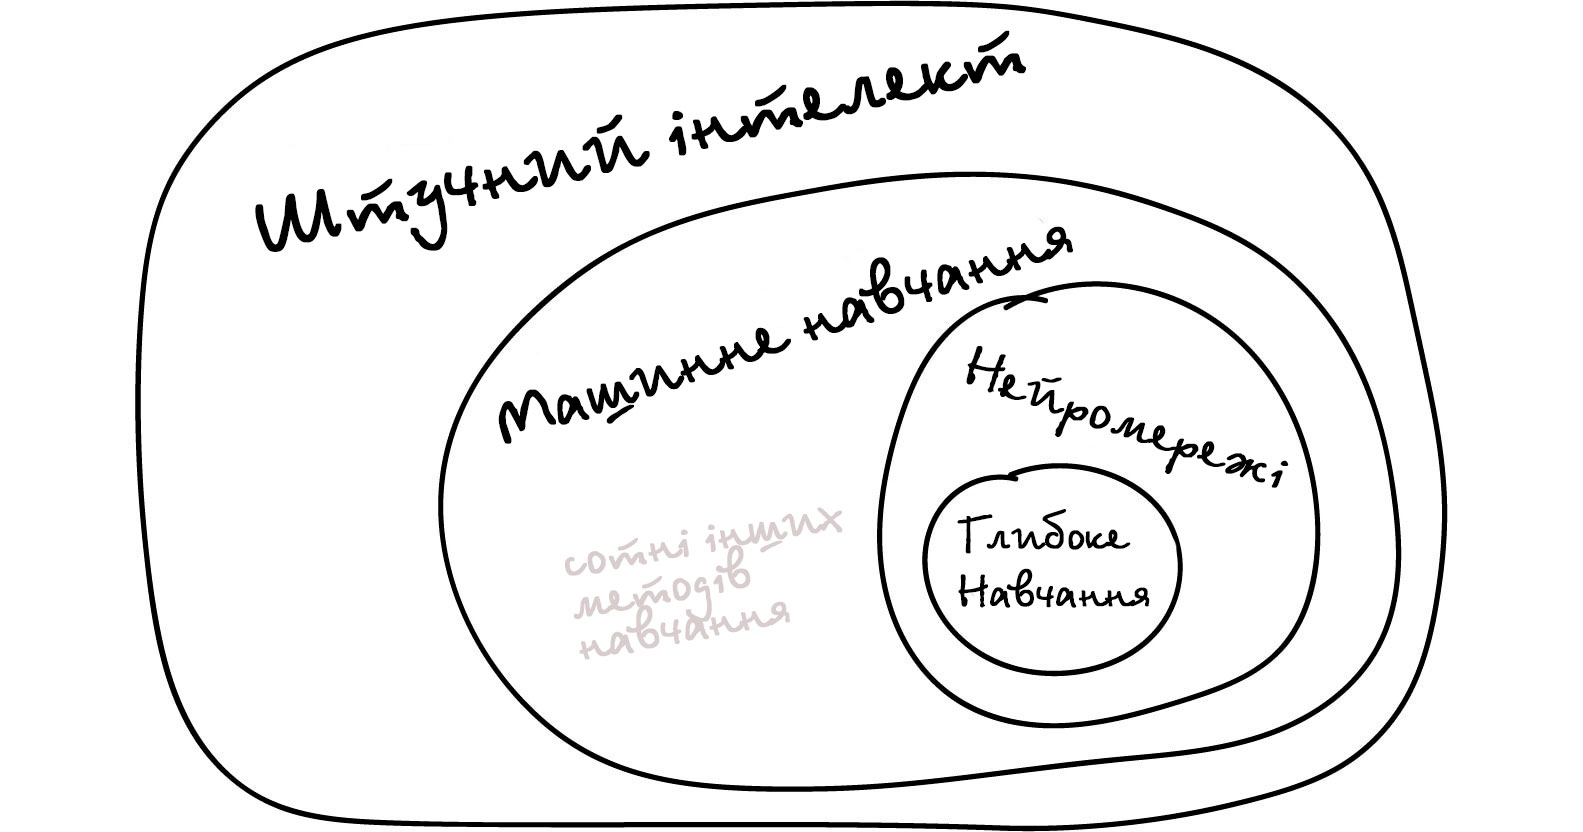 Штучний інтелект
Машинне навчання
Нейромережі
Глибоке
Навчання
сотні інших
методів
навчання